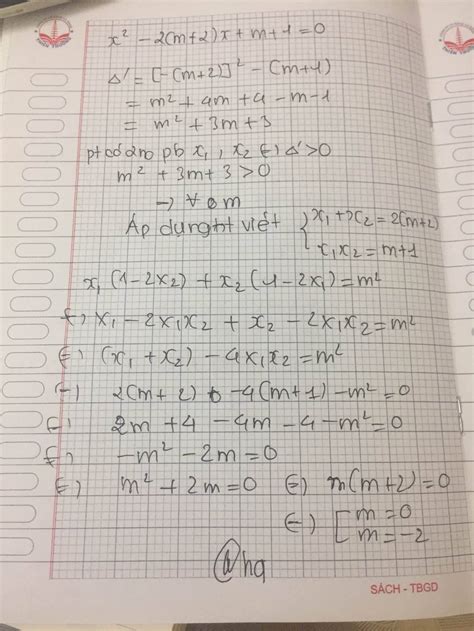 x² - 2(m+2)x + m + 1 = 0
Δ' = [-(m+2)]² - (m+1)
= m² + 4m + 4 - m - 1
= m² + 3m + 3
pt có 2no pb x₁, x₂ (=) Δ' > 0
m² + 3m + 3 > 0
→ ∀ m
Áp dụng ht viét { x₁ + x₂ = 2(m+2)
x₁x₂ = m+1
x₁(1 - 2x₂) + x₂(1 - 2x₁) = m²
(=) x₁ - 2x₁x₂ + x₂ - 2x₁x₂ = m²
(=) (x₁ + x₂) - 4x₁x₂ = m²
(=) 2(m+2) - 4(m+1) - m² = 0
(=) 2m + 4 - 4m - 4 - m² = 0
(=) -m² - 2m = 0
(=) m² + 2m = 0 (=) m(m+2) = 0
(=) [ m = 0
m = -2
@hq
SÁCH - TBGD